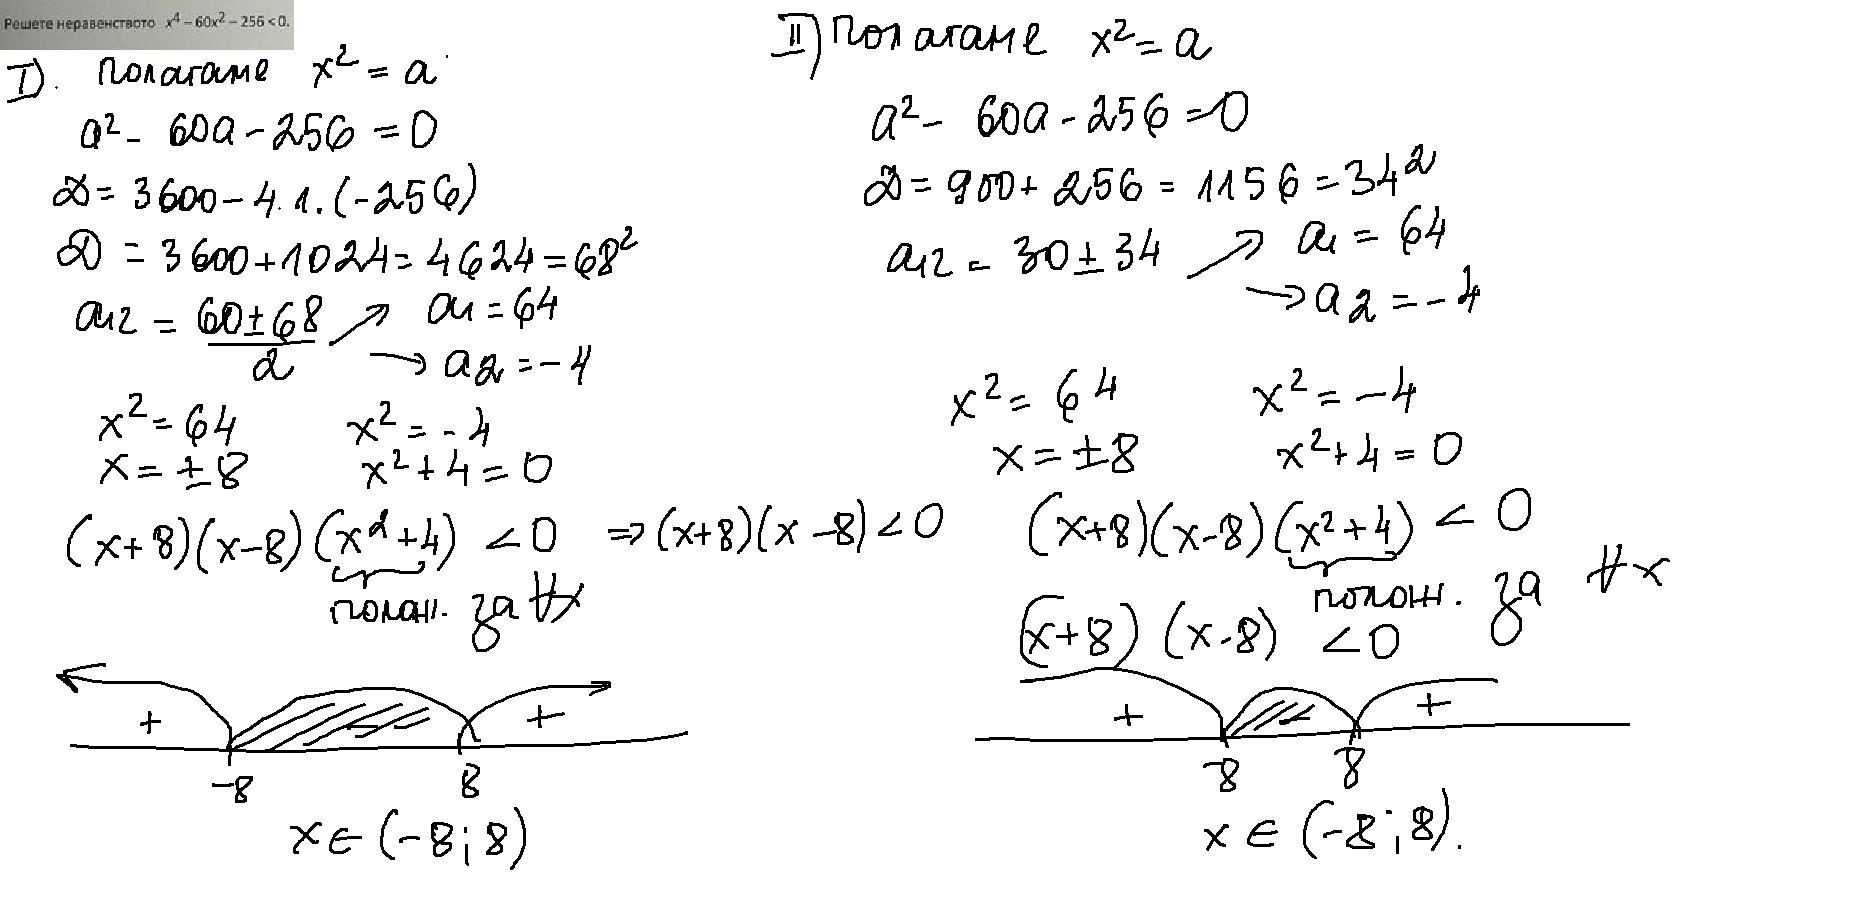 Решете неравенството x⁴ – 60x² – 256 < 0.
I). Полагаме x² = a
a² - 60a - 256 = 0
D = 3600 - 4.1.(-256)
D = 3600 + 1024 = 4624 = 68²
a₁₂ = (60 ± 68)/2 ↗ a₁ = 64
→ a₂ = -4
x² = 64 x² = -4
x = ±8 x² + 4 = 0
(x+8)(x-8)(x²+4) < 0 ⇒ (x+8)(x-8) < 0
полож. за ∀x
+ - +
-8 8
x ∈ (-8; 8)
II) Полагаме x² = a
a² - 60a - 256 = 0
D = 900 + 256 = 1156 = 34²
a₁₂ = 30 ± 34 ↗ a₁ = 64
→ a₂ = -4
x² = 64 x² = -4
x = ±8 x² + 4 = 0
(x+8)(x-8)(x²+4) < 0
полож. за ∀x
(x+8)(x-8) < 0
+ - +
-8 8
x ∈ (-8; 8).